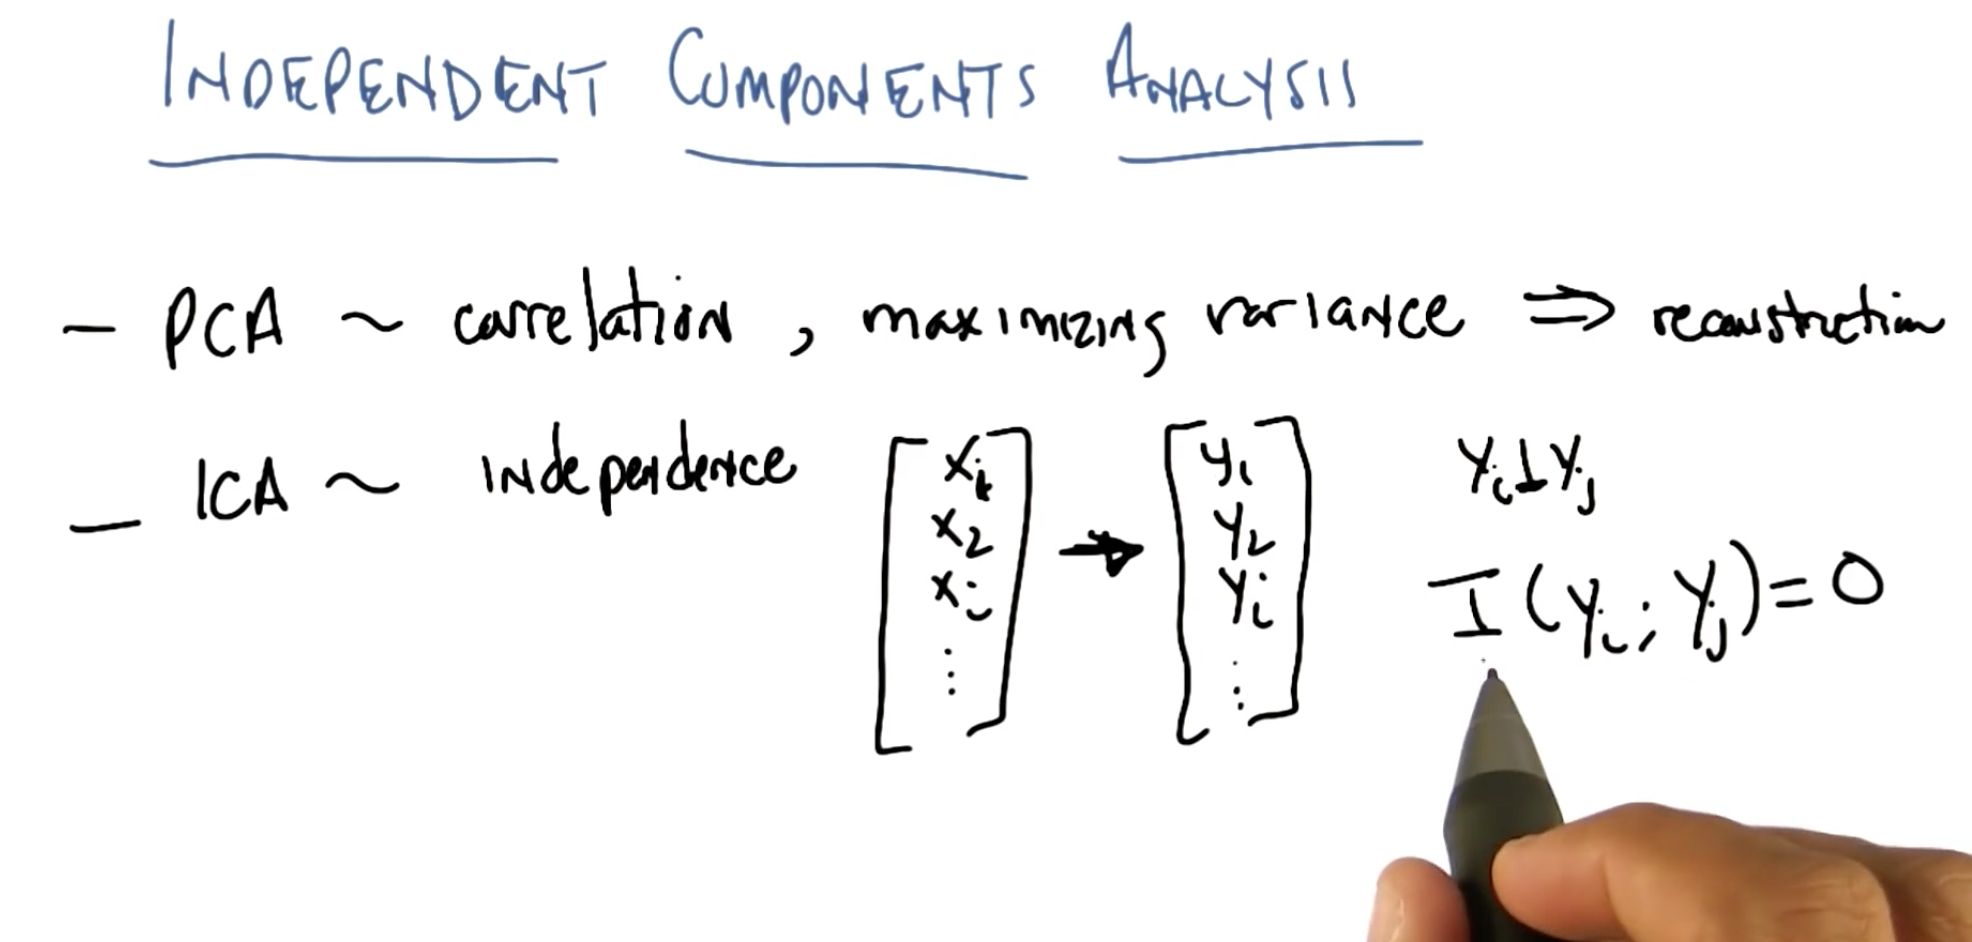 INDEPENDENT COMPONENTS ANALYSIS
- PCA ~ correlation, maximizing variance ⇒ reconstruction
- ICA ~ independence [x₁ x₂ xᵢ ⋮] → [y₁ y₂ yᵢ ⋮] yᵢ⊥yⱼ
I(yᵢ; yⱼ)=0